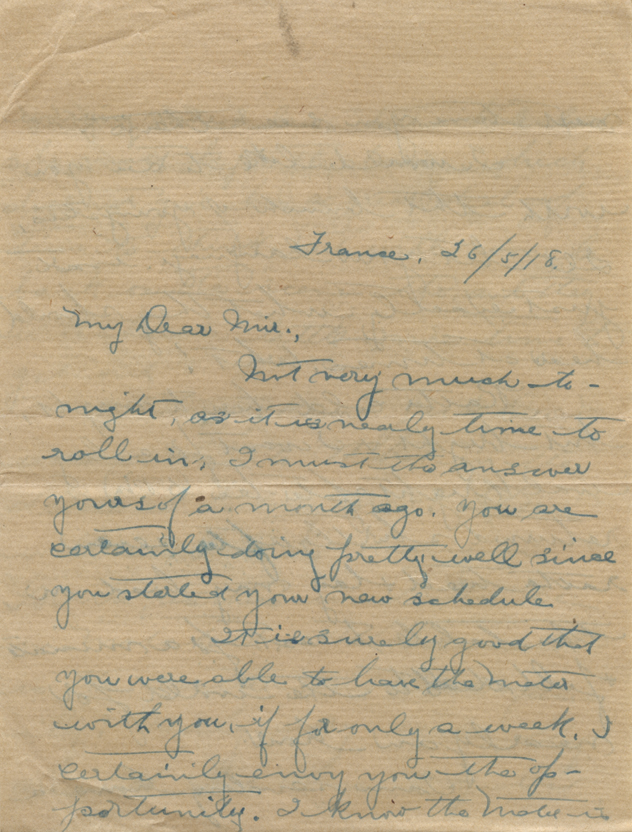 France, 26/5/18.
My Dear Mir.,
Not very much to-
night, as it is nearly time to
roll in, I must tho answer
yours of a month ago. You are
certainly doing pretty well since
you started your new schedule
It is surely good that
you were able to have the Mater
with you, if for only a week. I
certainly envy you the op-
portunity. I know the Mater is